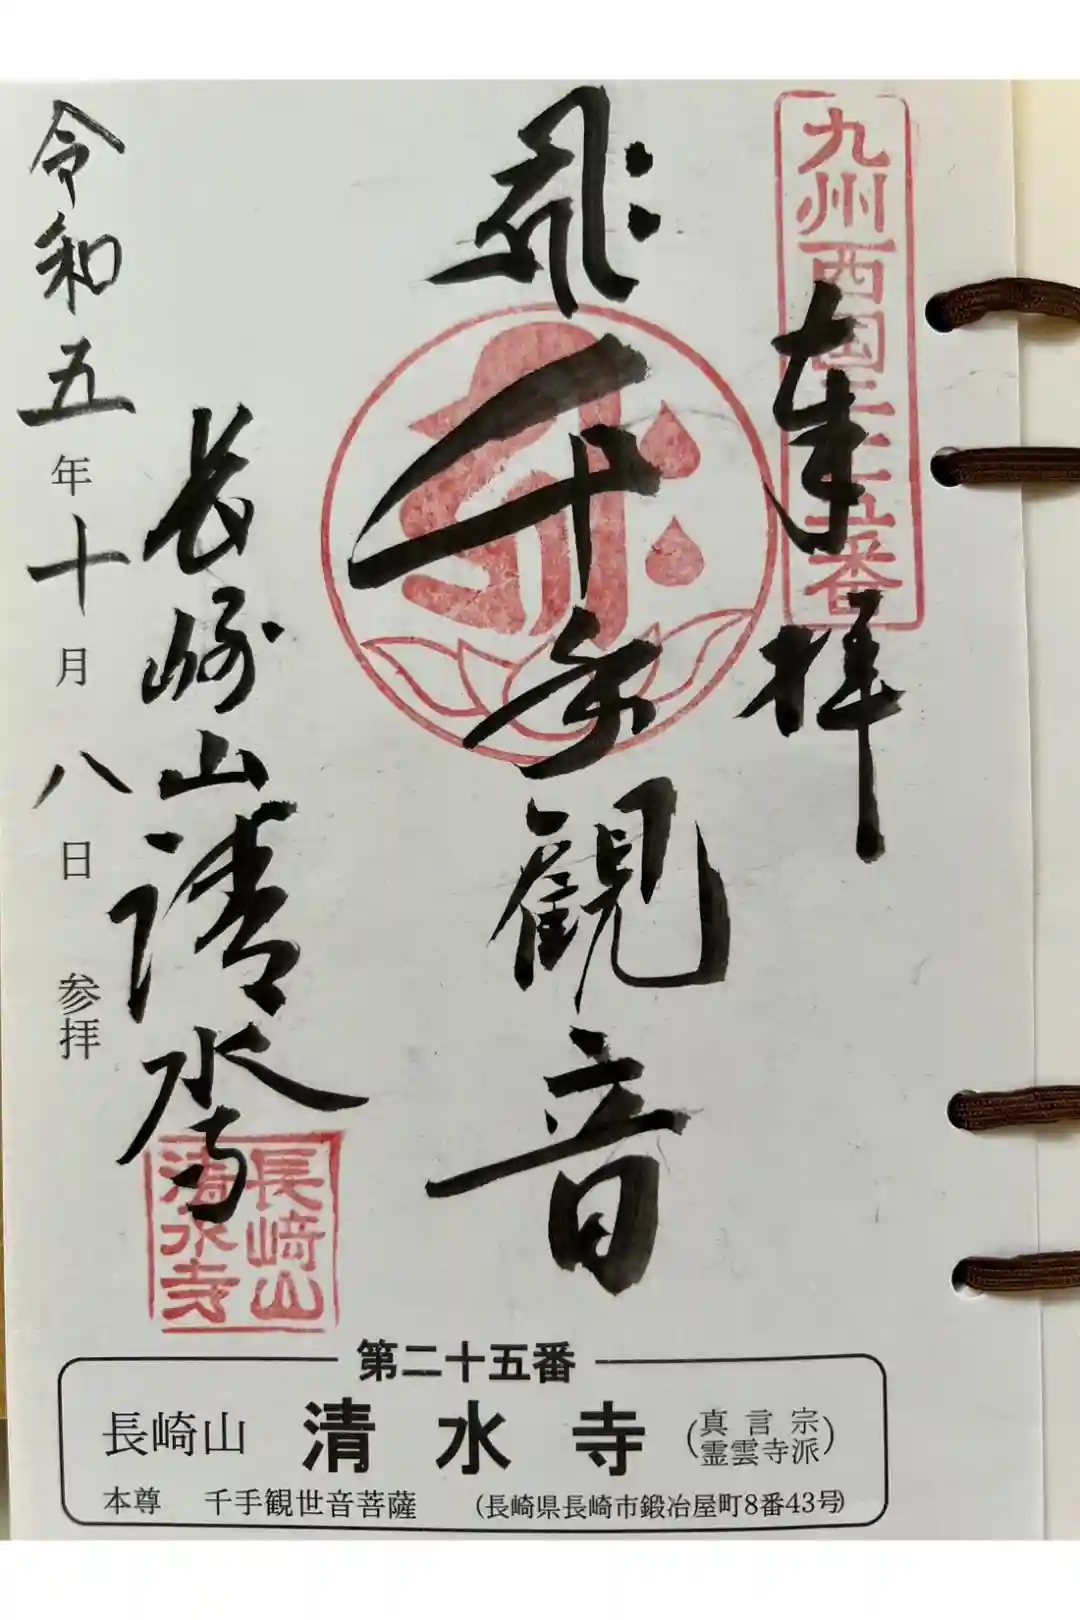 九州西国二十五番
奉拝
千手観音
長崎山清水寺
長崎山
清水寺
令和五年十月八日 参拝
第二十五番
長崎山 清水寺 (真言宗霊雲寺派)
本尊 千手観世音菩薩 (長崎県長崎市鍛冶屋町8番43号)